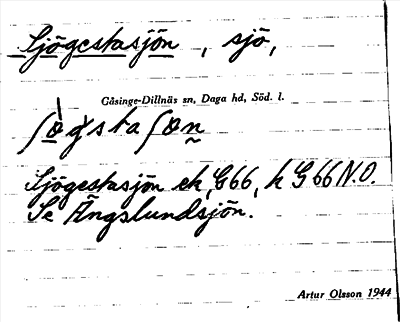 Sjögestasjön, sjö,
Gåsinge-Dillnäs sn, Daga hd, Söd. l.
Sjögestasjön ek, G66, h G66 N.O.
Se Ängslundsjön.
Artur Olsson 1944